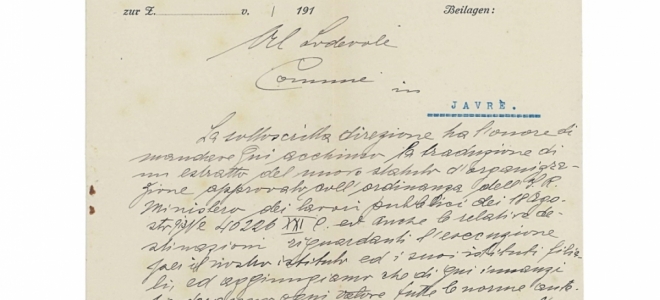 zur Z. v. / 191 Beilagen:
Al Lodevole
Comune
in
JAVRÈ.
La sottoscritta direzione ha l'onore di
mandare qui acchiuso la traduzione di
un estratto del nuovo statuto d'organizza-
zione approvato coll'ordinanza dell' I. R.
Ministero dei lavori pubblici dei 18 Ago-
sto 40226 XXI ed anche le relative de-
stinazioni riguardanti l'esecuzione
il nostro istituto ed i suoi istituti filia-
li, ed aggiungiamo che di qui innanzi
ogni valore tutte le norme